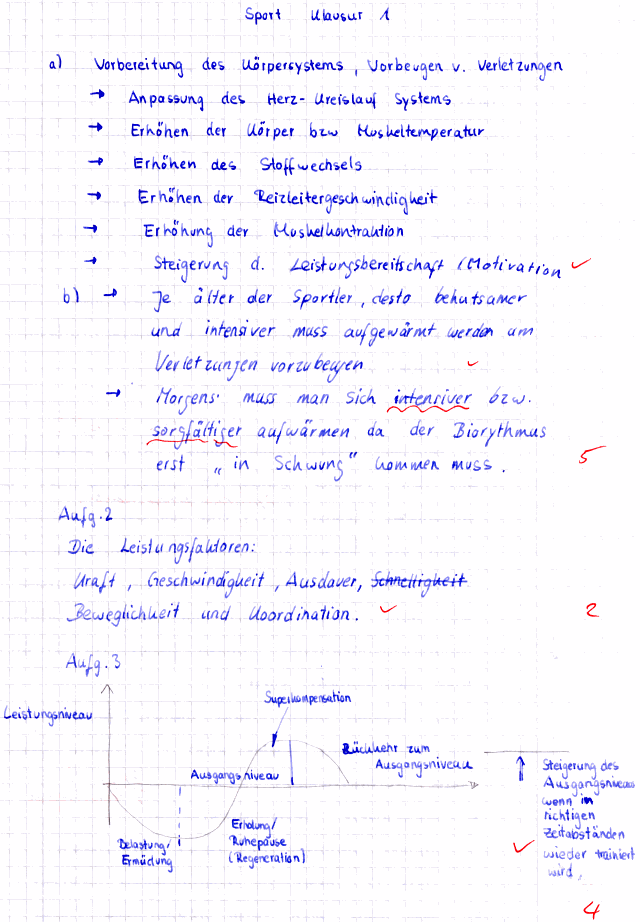 Sport Klausur 1
a) Vorbereitung des Körpersystems, Vorbeugen v. Verletzungen
→ Anpassung des Herz-Kreislauf Systems
→ Erhöhen der Körper bzw Muskeltemperatur
→ Erhöhen des Stoffwechsels
→ Erhöhen der Reizleitergeschwindigkeit
→ Erhöhung der Muskelkontraktion
→ Steigerung d. Leistungsbereitschaft /Motivation ✓
b) → Je älter der Sportler, desto behutsamer
und intensiver muss aufgewärmt werden um
Verletzungen vorzubeugen ✓
→ Morgens muss man sich intensiver bzw.
sorgfältiger aufwärmen da der Biorythmus
erst „in Schwung“ kommen muss. 5
Aufg.2
Die Leistungsfaktoren:
Kraft, Geschwindigkeit, Ausdauer, Schnelligkeit
Beweglichkeit und Koordination. ✓ 2
Aufg.3
Superkompensation
Leistungsniveau
Rückkehr zum
Ausgangsniveau
Ausgangsniveau
Belastung/
Ermüdung
Erholung/
Ruhepause
(Regeneration)
Steigerung des
Ausgangsniveaus
wenn in
richtigen
Zeitabständen
✓ wieder trainiert
wird,
4